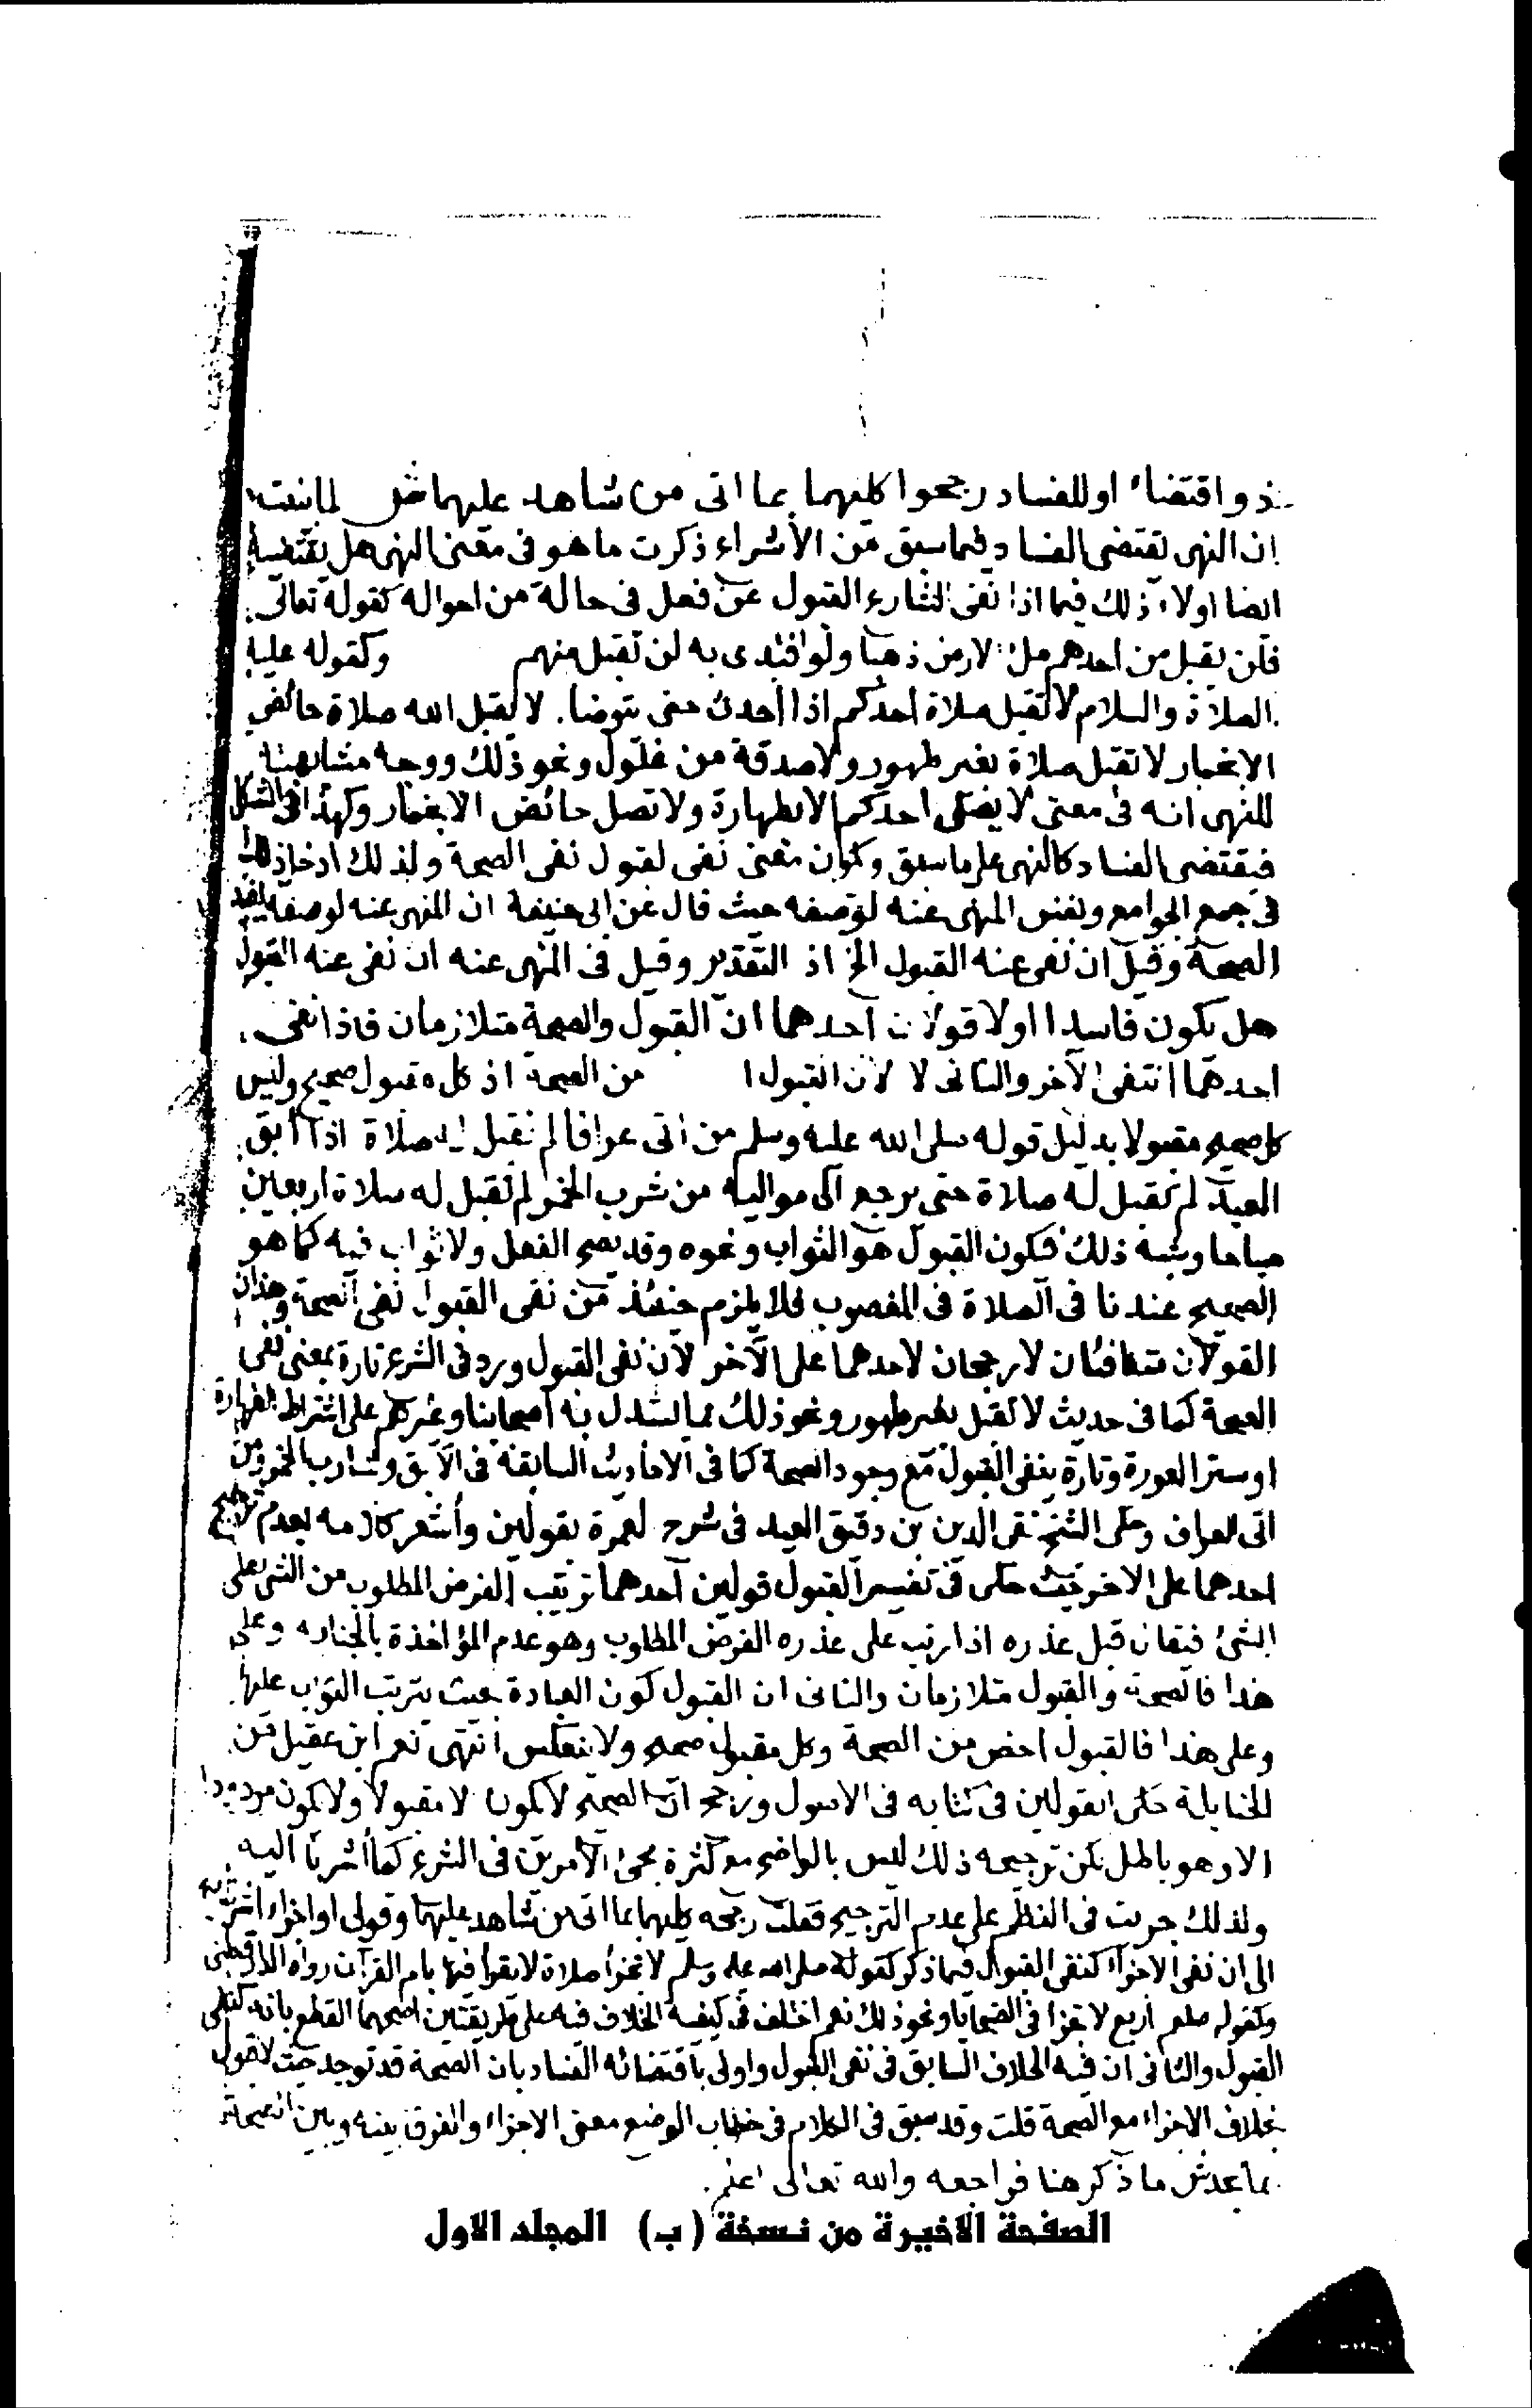 ذو اقتضاء او للفساد رجحوا كليهما بما اتى من شاهد عليهما ش لما بينت
ان النهى يقتضى الفساد فيما سبق من الأشراء ذكرت ما هو فى معنى النهى هل يقتضيه
ايضا اولا وذلك فيما اذا نفى الشارع القبول عن فعل فى حالة من احواله كقوله تعالى
فلن يقبل من احدهم ملء الارض ذهبا ولو افتدى به لن تقبل منهم وكقوله عليه
الصلاة والسلام لا تقبل صلاة احدكم اذا احدث حتى يتوضا. لا يقبل الله صلاة حائض
الا بخمار لا تقبل صلاة بغير طهور ولا صدقة من غلول ونحو ذلك ووجه مشابهته
للنهى انه فى معنى لا يصلى احدكم الا بطهارة ولا تصل حائض الا بخمار وكهذا فى الشكل
فيقتضى الفساد كالنهى على ما سبق وكون معنى نفى القبول نفى الصحة ولذلك ادخل
فى جمع الجوامع ونفس المنهى عنه لوصفه حيث قال عن ابى حنيفة ان المنهى عنه لوصفه يفيد
الصحة وقيل ان نفى عنه القبول الخ اذ التقدير وقيل فى المنهى عنه ان نفى عنه القبول
هل يكون فاسدا اولا قولان احدهما ان القبول والصحة متلازمان فاذا نفى
احدهما انتفى الآخر والثانى لا لان القبول ا من الصحة اذ كل مقبول صحيح وليس
كل صحيح مقبولا بدليل قوله صلى الله عليه وسلم من اتى عرافا لم تقبل له صلاة اذا أبق
العبد لم تقبل له صلاة حتى يرجع الى مواليه من شرب الخمر لم تقبل له صلاة اربعين
صباحا وشبه ذلك فيكون القبول هو الثواب ونحوه وقد يصح الفعل ولا ثواب فيه كما هو
الصحيح عندنا فى الصلاة فى المغصوب فلا يلزم حينئذ من نفى القبول نفى الصحة وهذان
القولان متكافئان لا رجحان لاحدهما على الآخر لان نفى القبول ورد فى الشرع تارة بمعنى نفى
الصحة كما فى حديث لا تقبل بغير طهور ونحو ذلك مما استدل به اصحابنا وغيرهم على اشتراط الطهارة
او ستر العورة وتارة بنفى القبول مع وجود الصحة كما فى الاحاديث السابقة فى الآبق وشارب الخمر ومن
اتى العراف وحكى الشيخ تقى الدين بن دقيق العيد فى شرح العمدة بقولين وأشعر كلامه بعدم ترجيح
احدهما على الاخر حيث حكى فى تفسير القبول قولين احدهما ترتيب الغرض المطلوب من الشىء على
الشىء فيقال قبل عذره اذا رتب على عذره الغرض المطلوب وهو عدم المؤاخذة بالجناية وعلى
هذا فالصحة والقبول متلازمان والثانى ان القبول كون العبادة بحيث يترتب الثواب عليها
وعلى هذا فالقبول اخص من الصحة وكل مقبول صحيح ولا ينعكس انتهى نعم ابن عقيل من
الحنابلة حكى القولين فى كتابه فى الاصول ورجح ان الصحيح لا يكون الا مقبولا ولا يكون مردودا
الا وهو باطل لكن ترجيحه ذلك ليس بالواضح مع كثرة مجىء الامرين فى الشرع كما أشرنا اليه
ولذلك جريت فى النظم على عدم الترجيح فقلت رجحه كليهما بما اتى من شاهد عليهما وقولى او اجزاء اشرت به
الى ان نفى الاجزاء كنفى القبول فيما ذكر كقوله صلى الله عليه وسلم لا تجزأ صلاة لا يقرأ فيها بام القرآن رواه الدارقطنى
وكقوله صلعم اربع لا تجزا فى الضحايا ونحو ذلك نعم اختلف فى كيفية الخلاف فيه على طريقتين اصحهما القطع بانه كنفى
القبول والثانى ان فيه الخلاف السابق فى نفى القبول واولى باقتضائه الفساد بان الصحة قد توجد حيث لا قبول
بخلاف الاجزاء مع الصحة قلت وقد سبق فى الكلام فى خطاب الوضع معنى الاجزاء والفرق بينه وبين الصحة
بما يخدش ما ذكر هنا فراجعه والله تعالى اعلم.
الصفحة الاخيرة من نسخة (ب) المجلد الاول